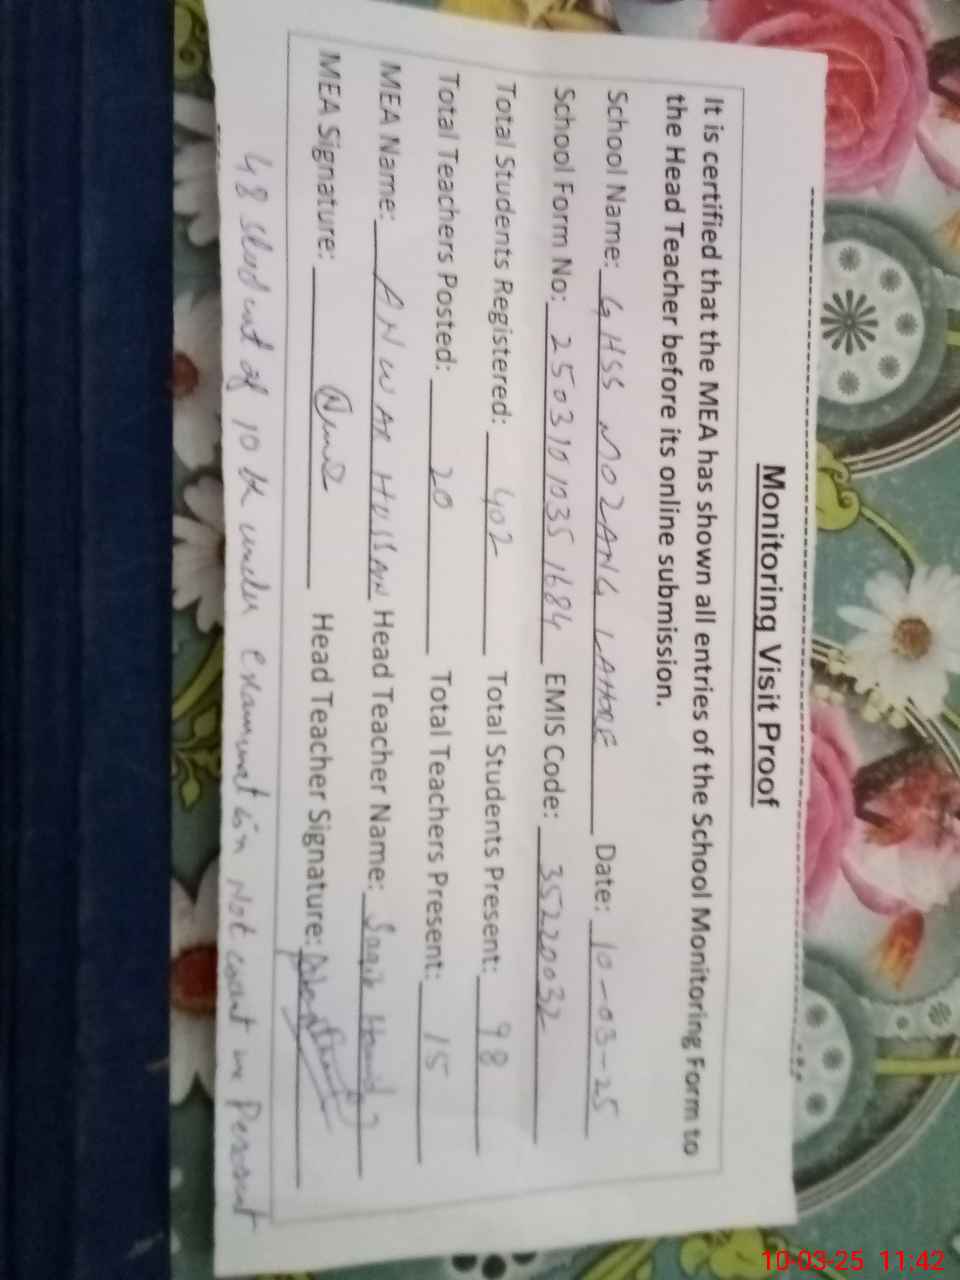 Monitoring Visit Proof
It is certified that the MEA has shown all entries of the School Monitoring Form to
the Head Teacher before its online submission.
School Name: GHSS MOZANG LAHORE Date: 10-03-25
School Form No: 2503101035 1684 EMIS Code: 35220032
Total Students Registered: 402 Total Students Present: 98
Total Teachers Posted: 20 Total Teachers Present: 15
MEA Name: ANWAR HUSSAN Head Teacher Name:
MEA Signature: Head Teacher Signature:
48 student of 10th under examination Not count in Present
10-03-25 11:42